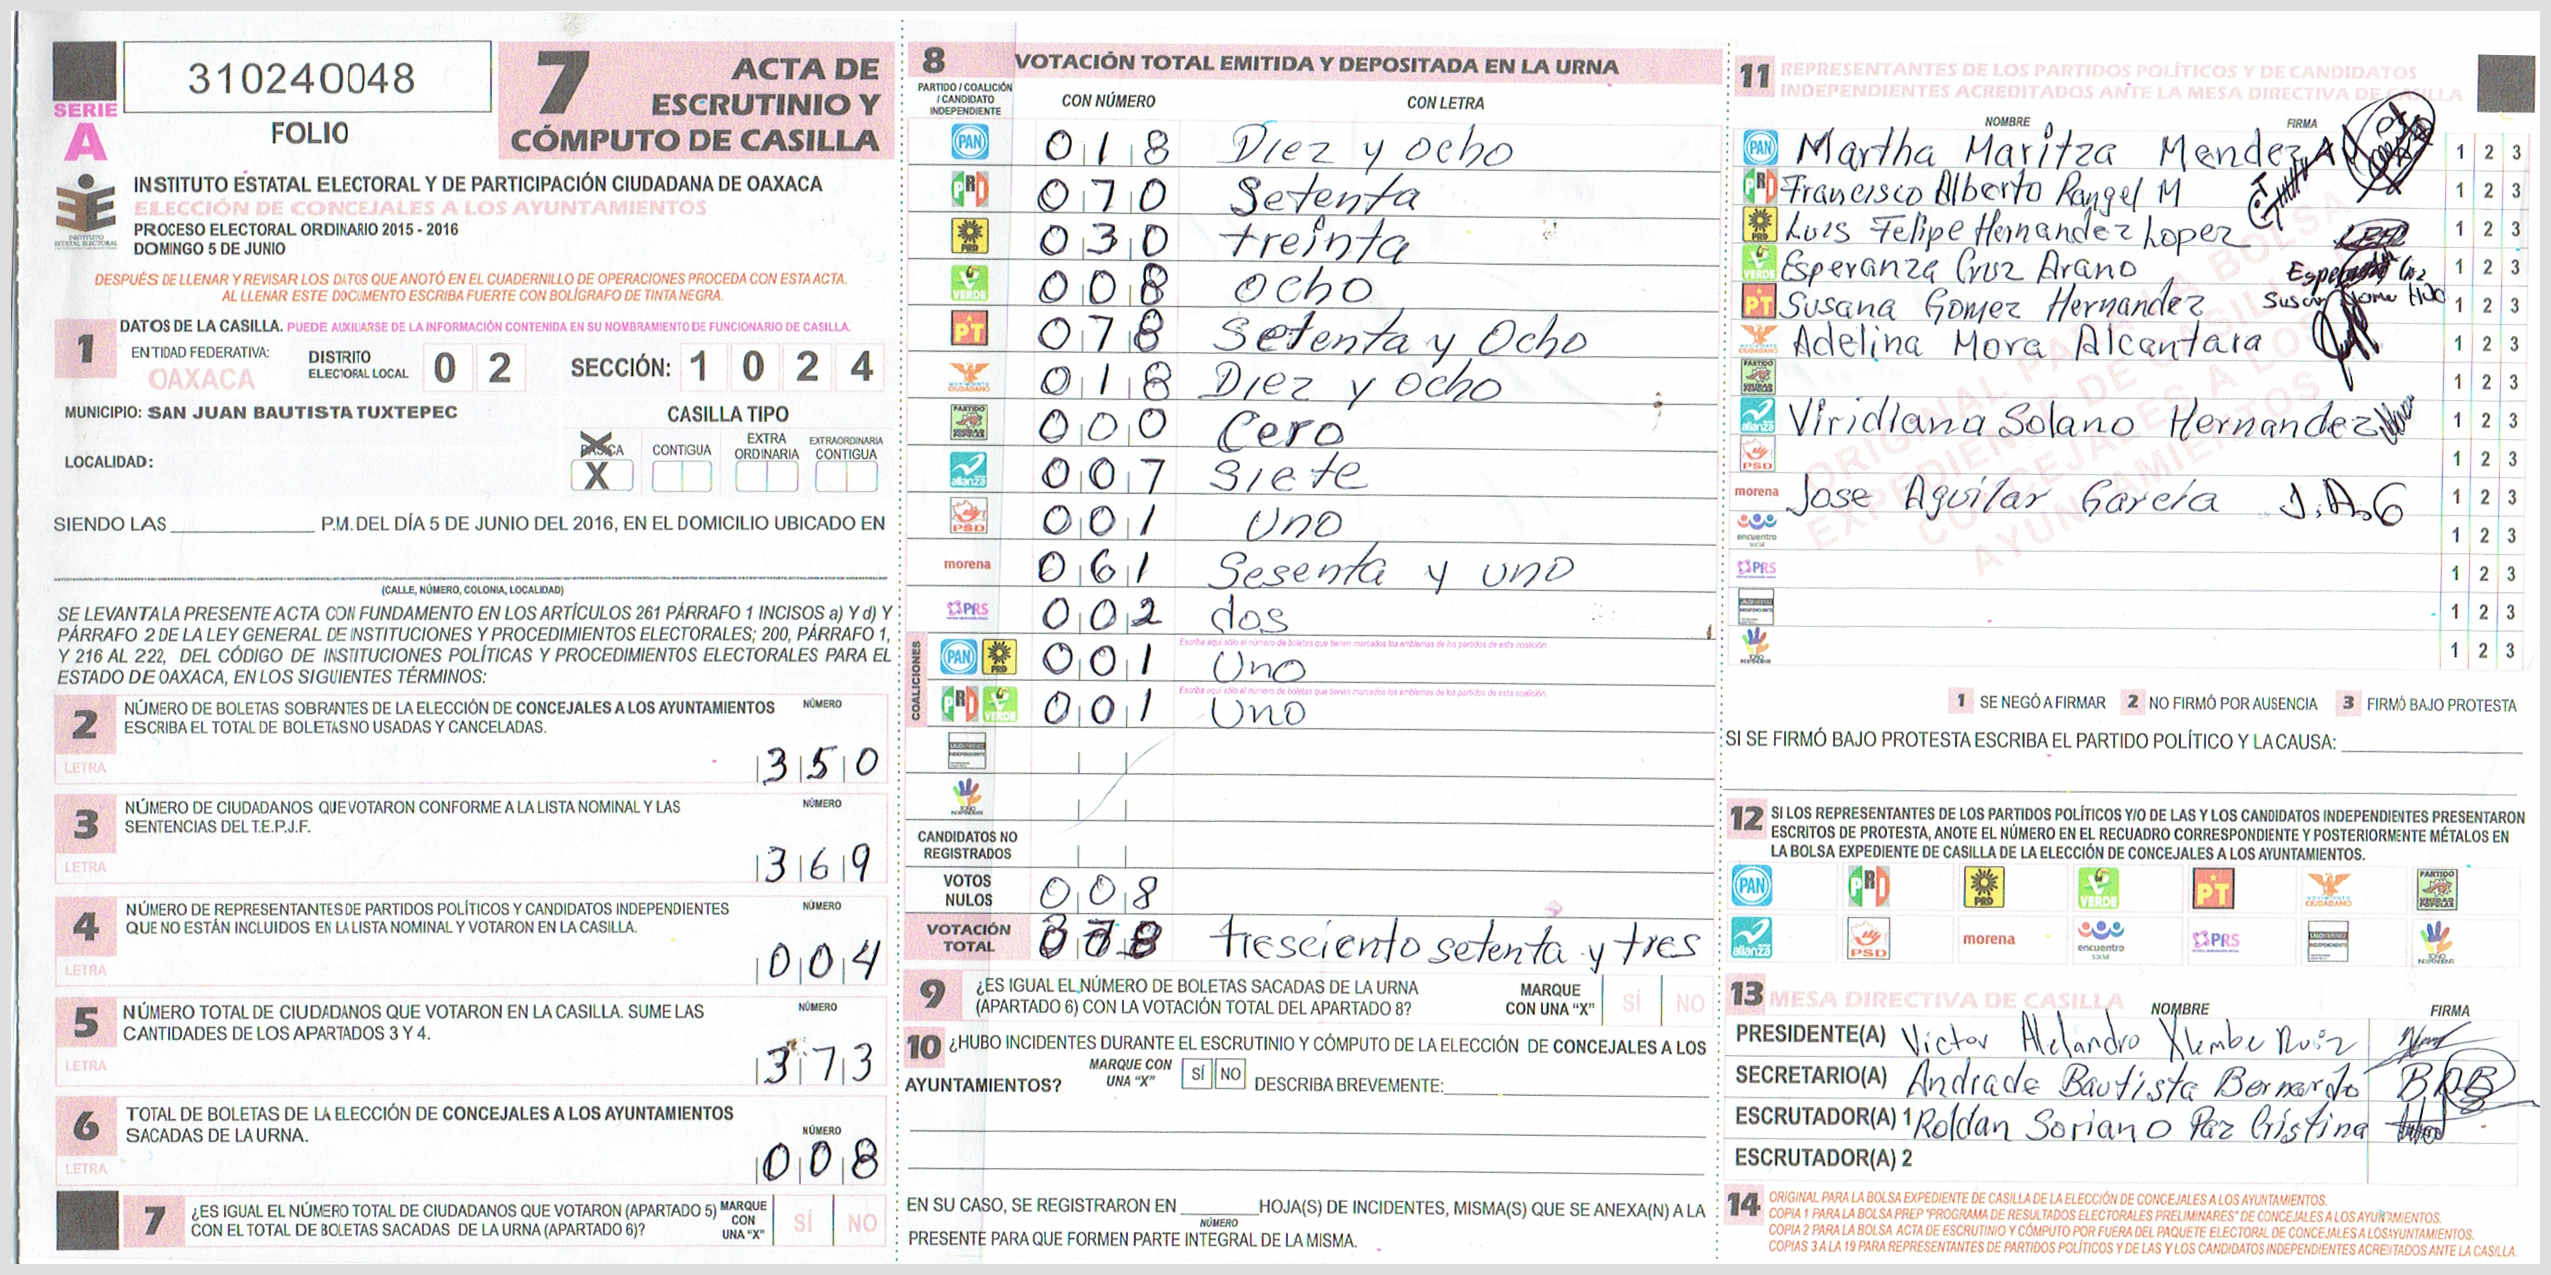 310240048
FOLIO
SERIE
A
7 ACTA DE
ESCRUTINIO Y
CÓMPUTO DE CASILLA
INSTITUTO ESTATAL ELECTORAL Y DE PARTICIPACIÓN CIUDADANA DE OAXACA
ELECCIÓN DE CONCEJALES A LOS AYUNTAMIENTOS
PROCESO ELECTORAL ORDINARIO 2015 - 2016
DOMINGO 5 DE JUNIO
DESPUÉS DE LLENAR Y REVISAR LOS DATOS QUE ANOTÓ EN EL CUADERNILLO DE OPERACIONES PROCEDA CON ESTA ACTA.
AL LLENAR ESTE DOCUMENTO ESCRIBA FUERTE CON BOLÍGRAFO DE TINTA NEGRA.
1 DATOS DE LA CASILLA. PUEDE AUXILIARSE DE LA INFORMACIÓN CONTENIDA EN SU NOMBRAMIENTO DE FUNCIONARIO DE CASILLA.
ENTIDAD FEDERATIVA: OAXACA
DISTRITO ELECTORAL LOCAL 0 2
SECCIÓN: 1 0 2 4
MUNICIPIO: SAN JUAN BAUTISTA TUXTEPEC
CASILLA TIPO
BÁSICA X CONTIGUA EXTRA ORDINARIA EXTRAORDINARIA CONTIGUA
LOCALIDAD:
SIENDO LAS P.M. DEL DÍA 5 DE JUNIO DEL 2016, EN EL DOMICILIO UBICADO EN
(CALLE, NÚMERO, COLONIA, LOCALIDAD)
SE LEVANTA LA PRESENTE ACTA CON FUNDAMENTO EN LOS ARTÍCULOS 261 PÁRRAFO 1 INCISOS a) Y d) Y
PÁRRAFO 2 DE LA LEY GENERAL DE INSTITUCIONES Y PROCEDIMIENTOS ELECTORALES; 200, PÁRRAFO 1,
Y 216 AL 222, DEL CÓDIGO DE INSTITUCIONES POLÍTICAS Y PROCEDIMIENTOS ELECTORALES PARA EL
ESTADO DE OAXACA, EN LOS SIGUIENTES TÉRMINOS:
2 NÚMERO DE BOLETAS SOBRANTES DE LA ELECCIÓN DE CONCEJALES A LOS AYUNTAMIENTOS NÚMERO
ESCRIBA EL TOTAL DE BOLETAS NO USADAS Y CANCELADAS.
LETRA 350
3 NÚMERO DE CIUDADANOS QUE VOTARON CONFORME A LA LISTA NOMINAL Y LAS NÚMERO
SENTENCIAS DEL T.E.P.J.F.
LETRA 369
4 NÚMERO DE REPRESENTANTES DE PARTIDOS POLÍTICOS Y CANDIDATOS INDEPENDIENTES NÚMERO
QUE NO ESTÁN INCLUIDOS EN LA LISTA NOMINAL Y VOTARON EN LA CASILLA.
LETRA 004
5 NÚMERO TOTAL DE CIUDADANOS QUE VOTARON EN LA CASILLA. SUME LAS NÚMERO
CANTIDADES DE LOS APARTADOS 3 Y 4.
LETRA 373
6 TOTAL DE BOLETAS DE LA ELECCIÓN DE CONCEJALES A LOS AYUNTAMIENTOS
SACADAS DE LA URNA. NÚMERO
LETRA 008
7 ¿ES IGUAL EL NÚMERO TOTAL DE CIUDADANOS QUE VOTARON (APARTADO 5)
CON EL TOTAL DE BOLETAS SACADAS DE LA URNA (APARTADO 6)?
MARQUE CON UNA "X" SÍ NO
8 VOTACIÓN TOTAL EMITIDA Y DEPOSITADA EN LA URNA
PARTIDO / COALICIÓN / CANDIDATO INDEPENDIENTE CON NÚMERO CON LETRA
PAN 018 Diez y ocho
PRD 070 Setenta
PRD 030 treinta
VERDE 008 ocho
PT 078 Setenta y Ocho
CIUDADANO 018 Diez y ocho
PARTIDO UNIDAD POPULAR 000 Cero
alianza 007 Siete
PSD 001 uno
morena 061 Sesenta y uno
PRS 002 dos
COALICIONES
Escriba aquí sólo el número de boletas que tienen marcados los emblemas de los partidos de esta coalición.
PAN PRD 001 Uno
Escriba aquí sólo el número de boletas que tienen marcados los emblemas de los partidos de esta coalición.
PRD VERDE 001 Uno
CANDIDATOS NO REGISTRADOS
VOTOS NULOS 008
VOTACIÓN TOTAL tresciento setenta y tres
9 ¿ES IGUAL EL NÚMERO DE BOLETAS SACADAS DE LA URNA
(APARTADO 6) CON LA VOTACIÓN TOTAL DEL APARTADO 8?
MARQUE CON UNA "X" SÍ NO
10 ¿HUBO INCIDENTES DURANTE EL ESCRUTINIO Y CÓMPUTO DE LA ELECCIÓN DE CONCEJALES A LOS
AYUNTAMIENTOS? MARQUE CON UNA "X" SÍ NO DESCRIBA BREVEMENTE:
EN SU CASO, SE REGISTRARON EN HOJA(S) DE INCIDENTES, MISMA(S) QUE SE ANEXA(N) A LA
NÚMERO
PRESENTE PARA QUE FORMEN PARTE INTEGRAL DE LA MISMA.
11 REPRESENTANTES DE LOS PARTIDOS POLÍTICOS Y DE CANDIDATOS
INDEPENDIENTES ACREDITADOS ANTE LA MESA DIRECTIVA DE CASILLA
NOMBRE FIRMA
PAN Martha Maritza Mendez A 1 2 3
PRD Francisco Alberto Rangel M 1 2 3
PRD Luis Felipe Hernandez Lopez 1 2 3
VERDE Esperanza Cruz Arano Esperanza Cruz 1 2 3
PT Susana Gomez Hernandez 1 2 3
CIUDADANO Adelina Mora Alcantara 1 2 3
1 2 3
alianza Viridiana Solano Hernandez 1 2 3
PSD 1 2 3
morena Jose Aguilar Garcia J.A.G 1 2 3
encuentro social 1 2 3
PRS 1 2 3
1 2 3
1 2 3
ORIGINAL PARA LA BOLSA
EXPEDIENTE DE CASILLA DE
CONCEJALES A LOS
AYUNTAMIENTOS
1 SE NEGÓ A FIRMAR 2 NO FIRMÓ POR AUSENCIA 3 FIRMÓ BAJO PROTESTA
SI SE FIRMÓ BAJO PROTESTA ESCRIBA EL PARTIDO POLÍTICO Y LA CAUSA:
12 SI LOS REPRESENTANTES DE LOS PARTIDOS POLÍTICOS Y/O DE LAS Y LOS CANDIDATOS INDEPENDIENTES PRESENTARON
ESCRITOS DE PROTESTA, ANOTE EL NÚMERO EN EL RECUADRO CORRESPONDIENTE Y POSTERIORMENTE MÉTALOS EN
LA BOLSA EXPEDIENTE DE CASILLA DE LA ELECCIÓN DE CONCEJALES A LOS AYUNTAMIENTOS.
PAN PRD PRD VERDE PT CIUDADANO PARTIDO UNIDAD POPULAR
alianza PSD morena encuentro social PRS
13 MESA DIRECTIVA DE CASILLA
NOMBRE FIRMA
PRESIDENTE(A) Victor Ruiz
SECRETARIO(A) Andrade Bautista Bernardo
ESCRUTADOR(A) 1 Roldan Soriano Paz Cristina
ESCRUTADOR(A) 2
14 ORIGINAL PARA LA BOLSA EXPEDIENTE DE CASILLA DE LA ELECCIÓN DE CONCEJALES A LOS AYUNTAMIENTOS.
COPIA 1 PARA LA BOLSA PREP "PROGRAMA DE RESULTADOS ELECTORALES PRELIMINARES" DE CONCEJALES A LOS AYUNTAMIENTOS.
COPIA 2 PARA LA BOLSA ACTA DE ESCRUTINIO Y CÓMPUTO POR FUERA DEL PAQUETE ELECTORAL DE CONCEJALES A LOS AYUNTAMIENTOS.
COPIAS 3 A LA 19 PARA REPRESENTANTES DE PARTIDOS POLÍTICOS Y DE LAS Y LOS CANDIDATOS INDEPENDIENTES ACREDITADOS ANTE LA CASILLA.